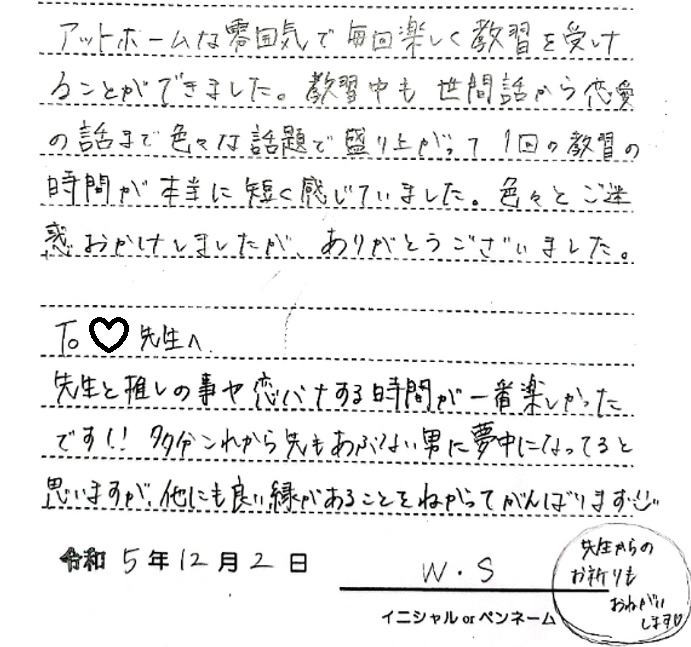 アットホームな雰囲気で毎回楽しく教習を受け
ることができました。教習中も世間話から恋愛
の話まで色々な話題で盛り上がって1回の教習の
時間が本当に短く感じていました。色々とご迷
惑おかけしましたが、ありがとうございました。
To ♡ 先生へ
先生と推しの事や恋バナする時間が一番楽しかった
です!! 多分これから先もあぶない男に夢中になってると
思いますが、他にも良い縁があることをねがってがんばります
令和 5年12月2日
W・S
イニシャルorペンネーム
先生からの
お祈りも
おねがい
します♡